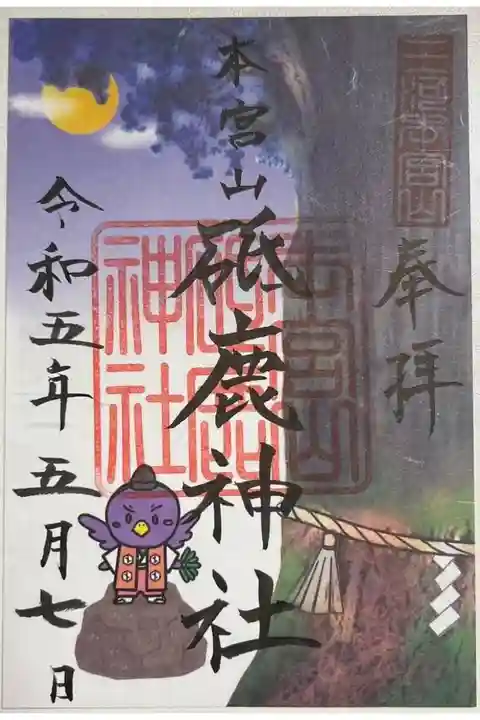 三河本宮山
奉拝
本宮山砥鹿神社
本宮山
砥鹿
神社
令和五年五月七日